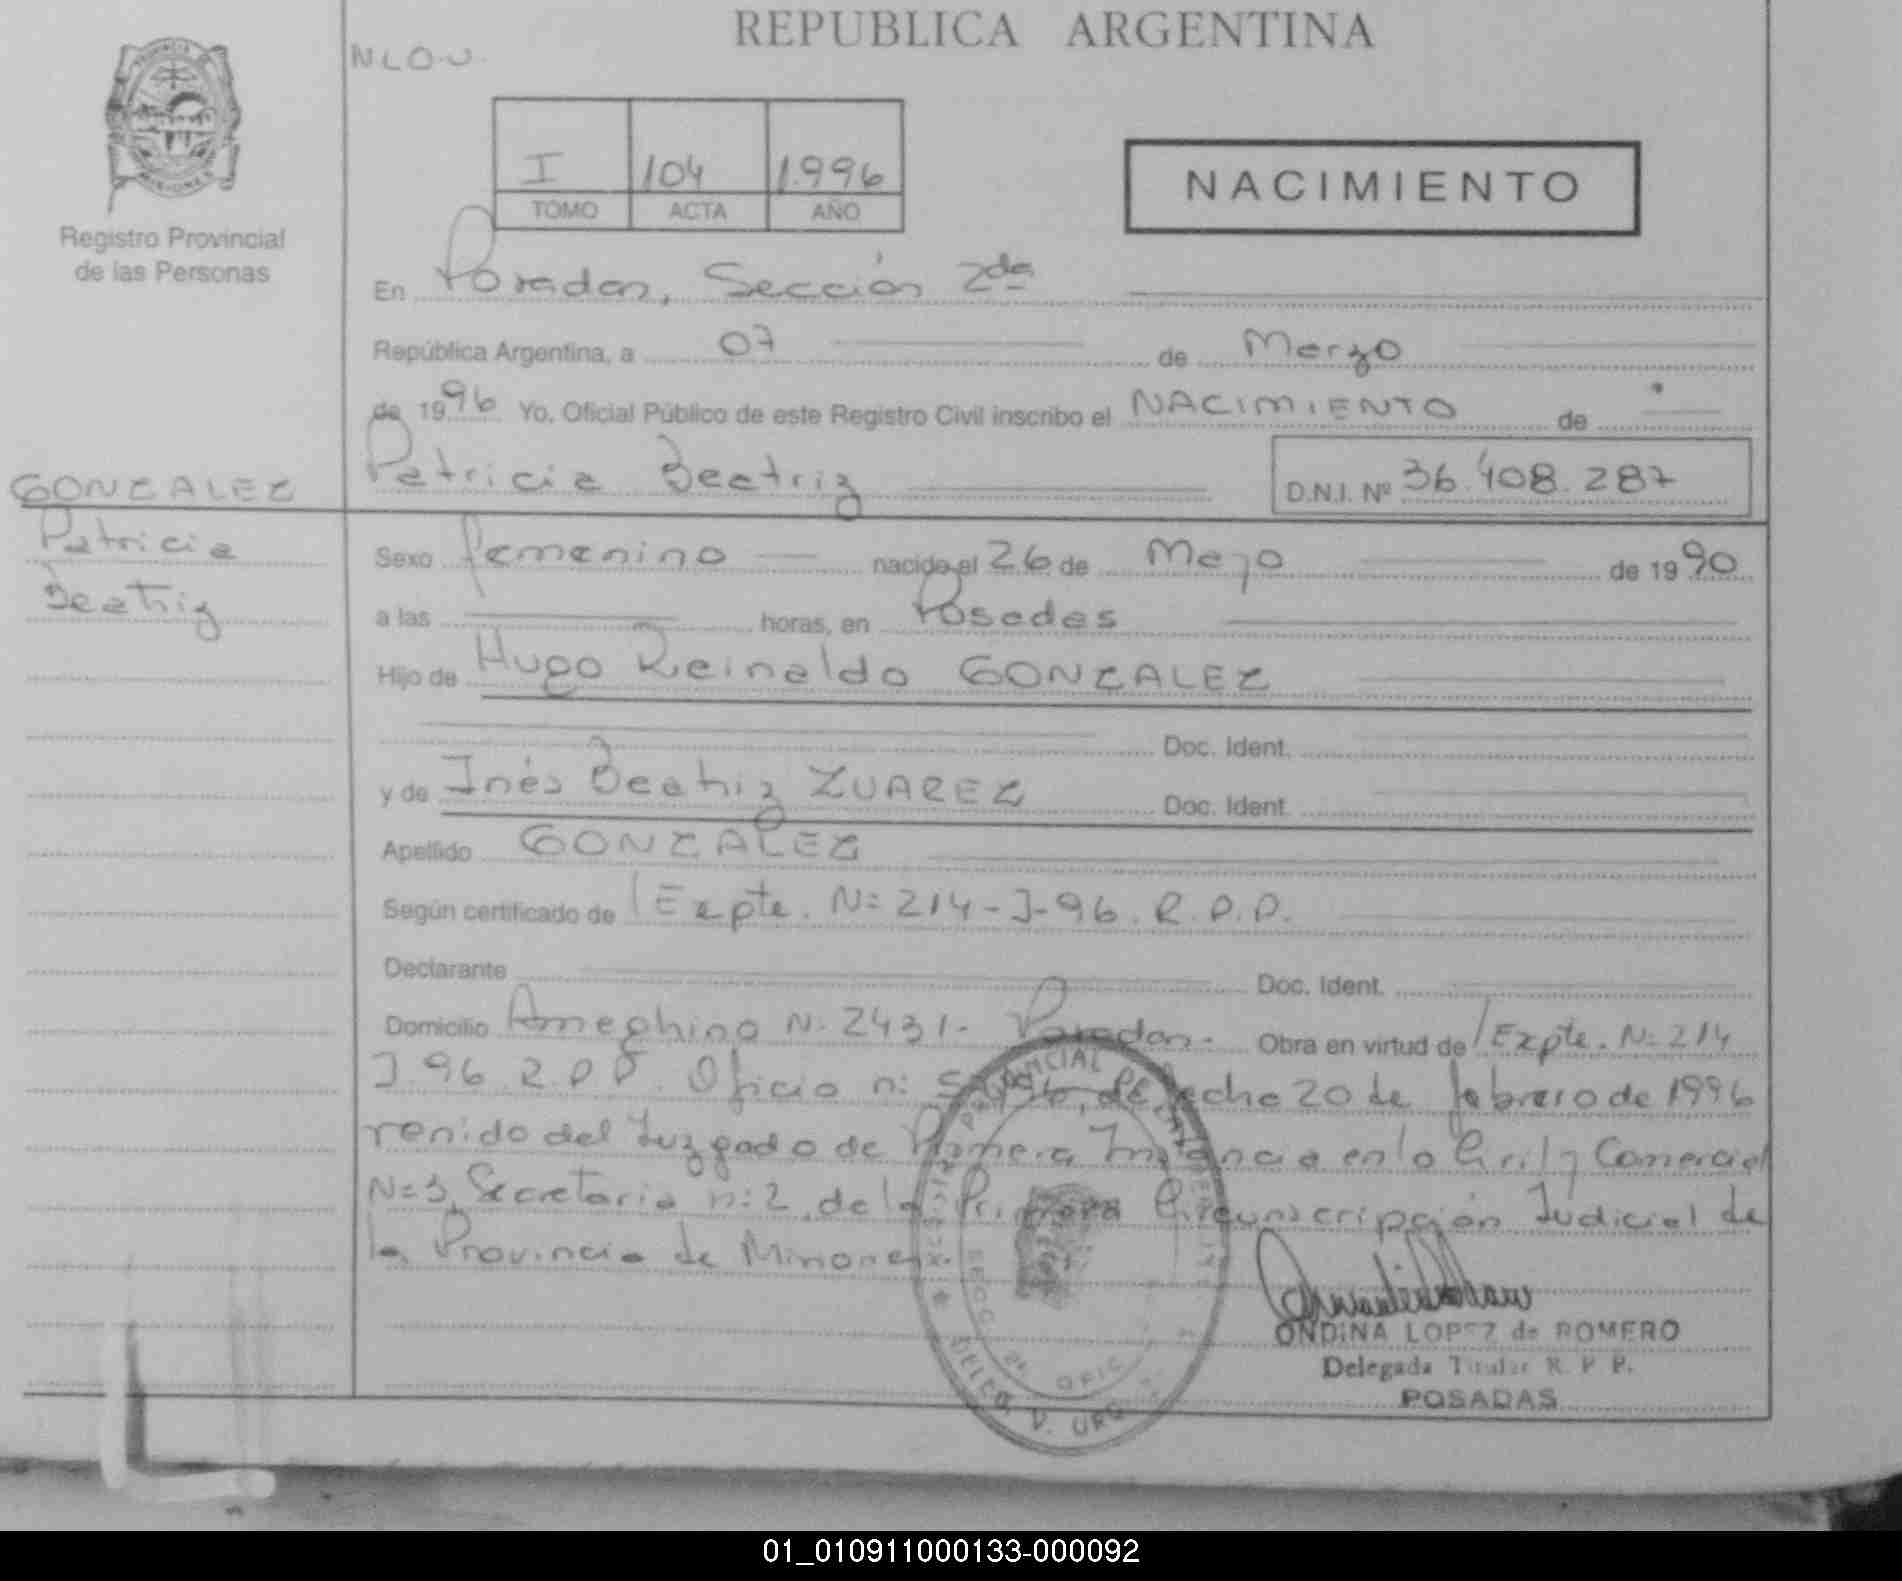 REPUBLICA ARGENTINA
PROVINCIA DE
MISIONES
Registro Provincial
de las Personas
I 104 1.996
TOMO ACTA AÑO
NACIMIENTO
En Posadas, Sección 2da
República Argentina, a 07 de Marzo
de 1996 Yo, Oficial Público de este Registro Civil inscribo el NACIMIENTO de
Patricia Beatriz D.N.I. Nº 36.408.287
GONZALEZ
Patricia
Beatriz
Sexo femenino nacido el 26 de Mayo de 1990
a las horas, en Posadas
Hijo de Hugo Reinaldo GONZALEZ
Doc. Ident.
y de Inés Beatriz ZUAREZ Doc. Ident.
Apellido GONZALEZ
Según certificado de Expte. Nº 214-J-96. R.P.P.
Declarante Doc. Ident.
Domicilio Ameghino Nº 2431. Posadas. Obra en virtud de Expte. Nº 214
J.96 R.P.P. Oficio nº de fecha 20 de febrero de 1996
venido del Juzgado de Primera Instancia en lo Civil y Comercial
Nº 3, Secretaria nº 2, de la Primera Circunscripción Judicial de
la Provincia de Misiones.
ONDINA LOPEZ de ROMERO
Delegada Titular R. P. P.
POSADAS
DELEG. V. URQ
01_010911000133-000092